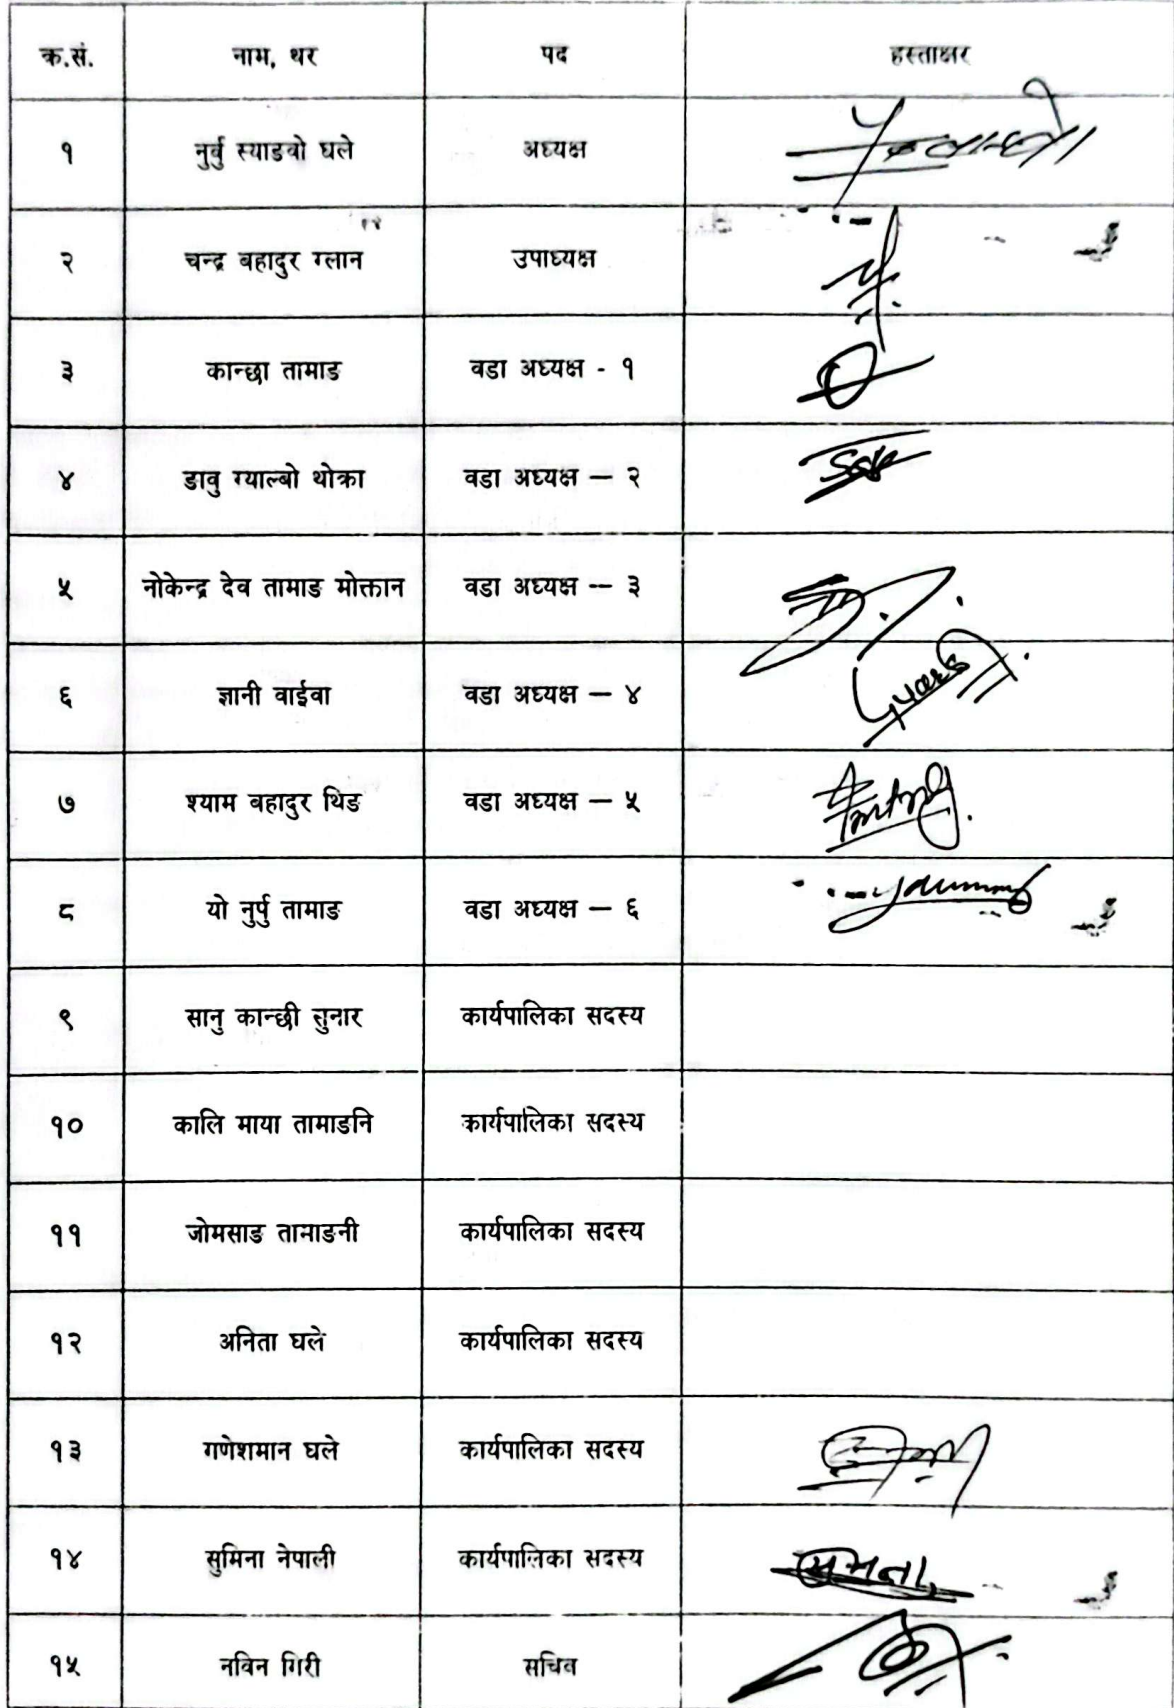 क्र.सं. नाम, थर पद हस्ताक्षर
१ नुर्बु स्याङवो घले अध्यक्ष
२ चन्द्र बहादुर ग्लान उपाध्यक्ष
३ कान्छा तामाङ वडा अध्यक्ष - १
४ डावु ग्याल्बो थोक्रा वडा अध्यक्ष — २
५ नोकेन्द्र देव तामाङ मोक्तान वडा अध्यक्ष — ३
६ ज्ञानी वाईवा वडा अध्यक्ष — ४
७ श्याम बहादुर थिङ वडा अध्यक्ष — ५
८ यो नुर्पु तामाङ वडा अध्यक्ष — ६
९ सानु कान्छी सुनार कार्यपालिका सदस्य
१० कालि माया तामाङनि कार्यपालिका सदस्य
११ जोमसाङ तामाङनी कार्यपालिका सदस्य
१२ अनिता घले कार्यपालिका सदस्य
१३ गणेशमान घले कार्यपालिका सदस्य
१४ सुमिना नेपाली कार्यपालिका सदस्य
१५ नविन गिरी सचिव